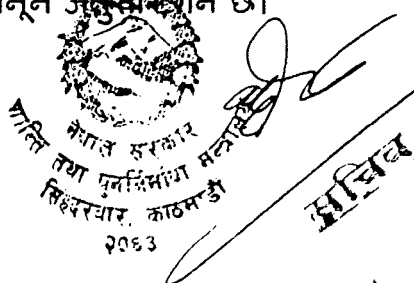 नेपाल सरकार
शान्ति तथा पुनर्निर्माण मन्त्रालय
सिंहदरबार, काठमाडौं
२०६३
सचिव